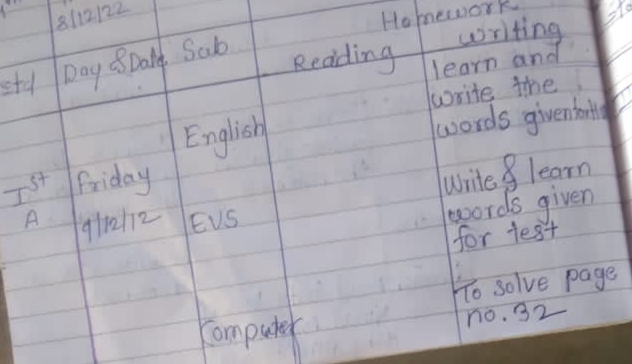 8/12/22
Homework
std Day & Date Sub Reading writing
learn and
write the
English words given
Ist Friday
A 9/12/12 EVS Write & learn
words given
for test
Computer To solve page
no. 32